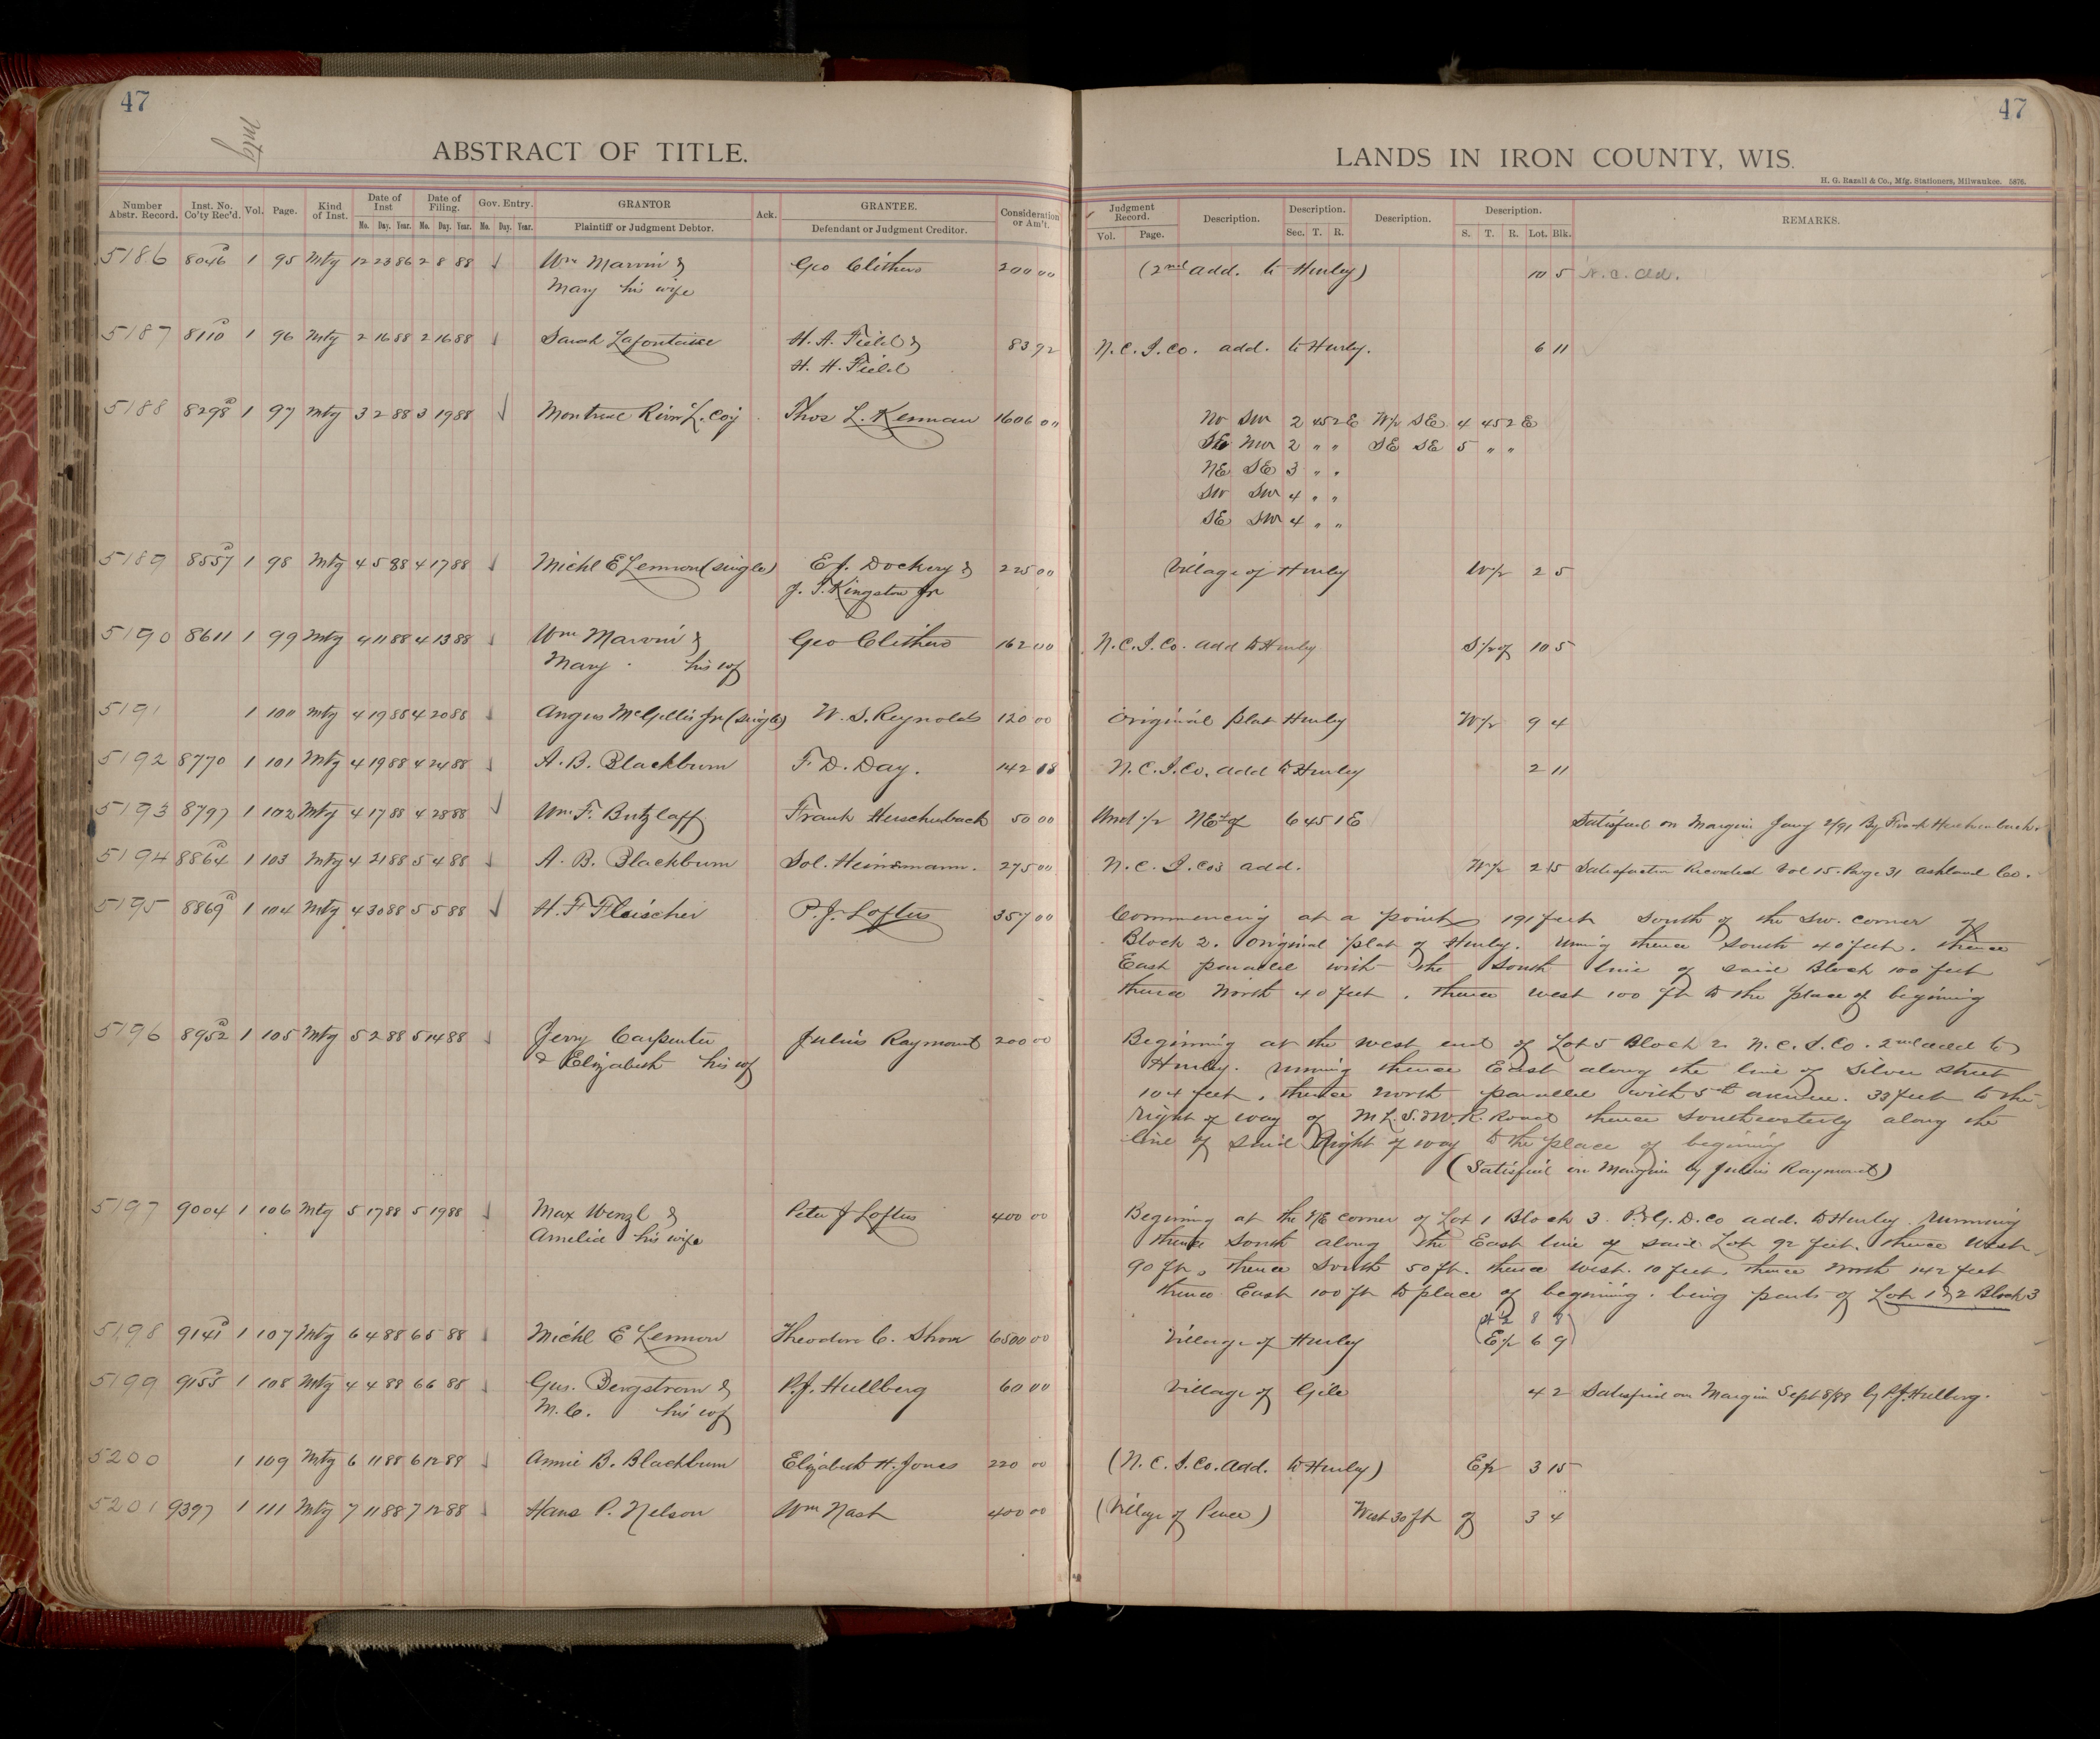 47
mtg
ABSTRACT OF TITLE.
Number Abstr. Record. Inst. No. Co'ty Rec'd. Vol. Page. Kind of Inst. Date of Inst Mo. Day. Year. Date of Filing. Mo. Day. Year. Gov. Entry. Mo. Day. Year. GRANTOR Plaintiff or Judgment Debtor. Ack. GRANTEE. Defendant or Judgment Creditor. Consideration or Am't.
5186 8046 1 95 Mtg 12 23 86 2 8 88 Wm Marvin & Geo Clithero 200 00
Mary his wife
5187 8110 1 96 Mtg 2 16 88 2 16 88 Sarah Lafontaise H. A. Field & 83 92
H. H. Field
5188 8298 1 97 Mtg 3 2 88 3 19 88 Montreal River L. Coy Thos L. Kennan 1606 00
5189 8557 1 98 Mtg 4 5 88 4 17 88 Michl E Lennon (single) E.J. Dockery & 225 00
J. T. Kingston Jr
5190 8611 1 99 Mtg 4 11 88 4 13 88 Wm Marvin & Geo Clithero 162 00
Mary his wf
5191 1 100 Mtg 4 19 88 4 20 88 Angus McGillis Jr (single) W. S. Reynolds 120 00
5192 8770 1 101 Mtg 4 19 88 4 24 88 A. B. Blackburn F. D. Day. 142 18
5193 8797 1 102 Mtg 4 17 88 4 28 88 Wm F. Butzlaff Frank Herschenbach 50 00
5194 8864 1 103 Mtg 4 21 88 5 4 88 A. B. Blackburn Sol. Heinemann. 275 00
5195 8869 1 104 Mtg 4 30 88 5 5 88 H. F Fleischer P. J. Loftus 357 00
5196 8952 1 105 Mtg 5 2 88 5 14 88 Jerry Carpenter Julius Raymont 200 00
& Elizabeth his wf
5197 9004 1 106 Mtg 5 17 88 5 19 88 Max Wenzl & Peter J Loftus 400 00
Amelia his wife
5198 9141 1 107 Mtg 6 4 88 6 5 88 Michl E Lennon Theodore C. Shove 6500 00
5199 9153 1 108 Mtg 4 4 88 6 6 88 Gus. Bergstrom & P. J. Hullberg 60 00
M. C. his wf
5200 1 109 Mtg 6 11 88 6 12 88 Annie B. Blackburn Elizabeth H. Jones 220 00
5201 9397 1 111 Mtg 7 11 88 7 12 88 Hans P. Nelson Wm Nash 400 00
47
LANDS IN IRON COUNTY, WIS.
H. G. Razall & Co., Mfg. Stationers, Milwaukee. 5876.
Judgment Record. Vol. Page. Description. Description. Sec. T. R. Description. Description. S. T. R. Lot. Blk. REMARKS.
(2nd add. to Hurley) 10 5 N. C. Ad.
N. C. I. Co. add. to Hurley. 6 11
NW SW 2 45 2E W½ SE 4 45 2E
SE NW 2 " " SE SE 5 " "
NE SE 3 " "
SW SW 4 " "
SE SW 4 " "
Village of Hurley W½ 2 5
N. C. I. Co. add to Hurley S½ of 10 5
Original plat Hurley W½ 9 4
N. C. I. Co. add to Hurley 2 11
Und ½ NE¼ of 6 45 1E Satisfied on Margin Jany 2/91 By Frank Herschenbach
N. C. I. Cos add. W½ 2 15 Satisfaction Recorded Vol 15. Page 31 Ashland Co.
Commencing at a point 191 feet South of the SW. corner of
Block 2. Original plat of Hurley. Runing thence South 40 feet. thence
East parallel with the South line of said Block 100 feet
thence North 40 feet. thence West 100 ft to the place of begining
Beginning at the West end of Lot 5 Block 2 N. C. I. Co. 2nd add to
Hurley. runing thence East along the line of Silver Street
104 feet, thence North parallel with 5th avenue. 33 feet to the
right of way of M. L. S. & W. R. Road thence Southwesterly along the
line of said Right of way to the place of begining
(Satisfied on Margin by Julius Raymont)
Begining at the NE corner of Lot 1 Block 3. P. & G. D. Co add. to Hurley. Running
thence South along the East line of said Lot 92 feet. thence West
90 ft, thence South 50 ft. thence West. 10 feet, thence North 142 feet
thence East 100 ft to place of begining. being parts of Lots 1 & 2 Block 3
8 8
Village of Hurley (E½ 6 9)
Village of Gile 4 2 Satisfied on Margin Sept 8/88 by P. J. Hullberg.
(N. C. I. Co. Add. to Hurley) E½ 3 15
(Village of Pence) West 30 ft of 3 4